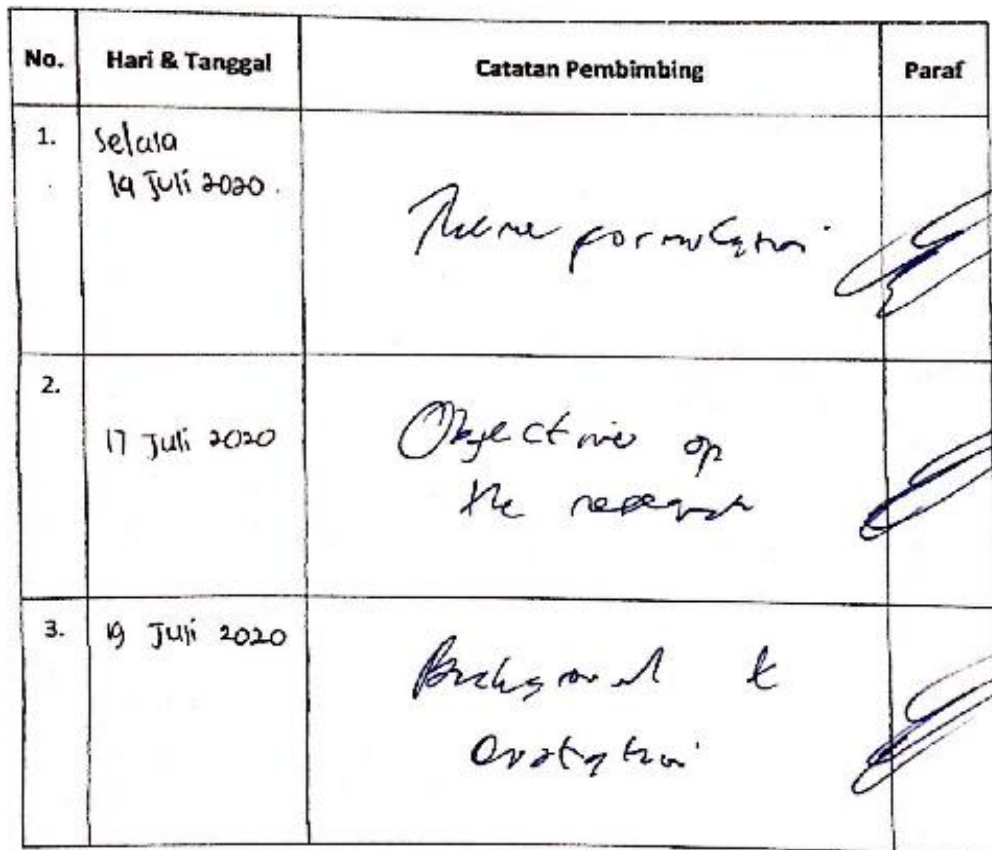 No. Hari & Tanggal Catatan Pembimbing Paraf
1. Selasa
14 Juli 2020.
Theme formulation
2.
17 Juli 2020 Objectives of
the research
3. 19 Juli 2020 Background &